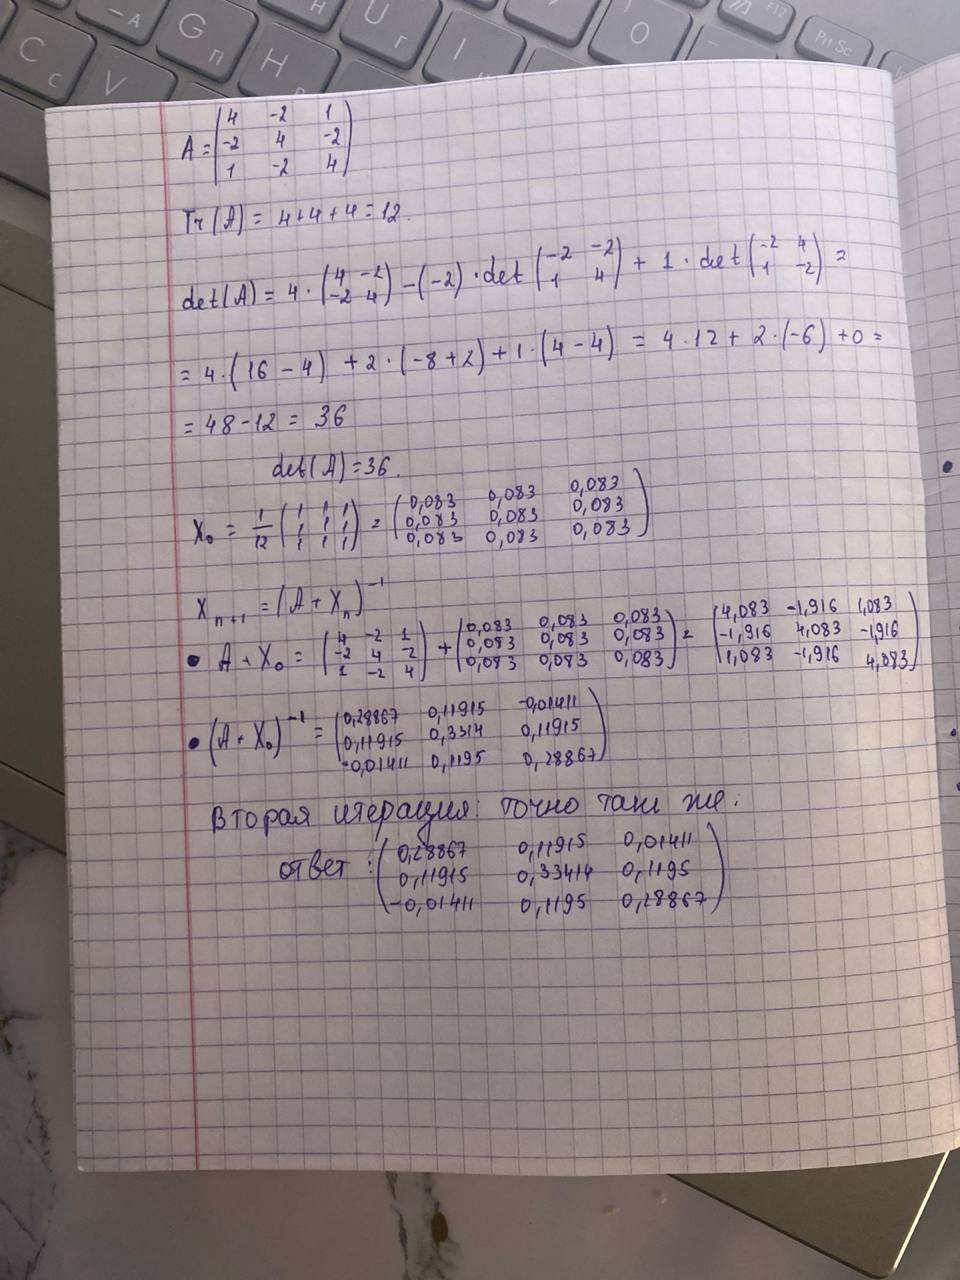 C
c
V
-
A
G
П
п
H
Н
U
Г
г
I
O
-
F12
Prt Sc
In
A = (4 -2 1
-2 4 -2
1 -2 4)
Tr(A) = 4+4+4=12.
det(A) = 4 · (4 -2
-2 4) - (-2) · det (-2 -2
1 4) + 1 · det (-2 4
1 -2) =
= 4 · (16 - 4) + 2 · (-8 + 2) + 1 · (4 - 4) = 4 · 12 + 2 · (-6) + 0 =
= 48 - 12 = 36
det(A) = 36.
X₀ = 1/12 (1 1 1
1 1 1
1 1 1) = (0,083 0,083 0,083
0,083 0,083 0,083
0,083 0,083 0,083)
Xₙ₊₁ = (A + Xₙ)⁻¹
• A + X₀ = (4 -2 1
-2 4 -2
1 -2 4) + (0,083 0,083 0,083
0,083 0,083 0,083
0,083 0,083 0,083) = (4,083 -1,916 1,083
-1,916 4,083 -1,916
1,083 -1,916 4,083)
• (A + X₀)⁻¹ = (0,28867 0,11915 -0,01411
0,11915 0,3314 0,11915
-0,01411 0,1195 0,28867)
Вторая итерация: точно так же:
ответ: (0,28867 0,11915 0,01411
0,11915 0,33414 0,1195
-0,01411 0,1195 0,28867)